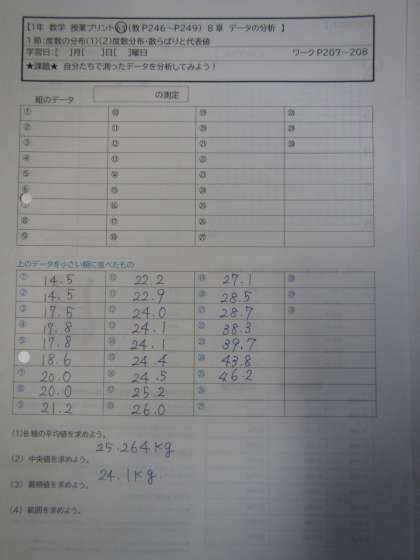 【1年 数学 授業プリント㊿(教P246～P249) 8章 データの分析 】
1節:度数の分布(1)(2)度数分布・散らばりと代表値
学習日:[ ]月[ ]日[ ]曜日 ワークP207～208
★課題★ 自分たちで測ったデータを分析してみよう!
組のデータ の測定
① ⑩ ⑲ ㉘
② ⑪ ⑳ ㉙
③ ⑫ ㉑ ㉚
④ ⑬ ㉒
⑤ ⑭ ㉓
⑥ ⑮ ㉔
⑦ ⑯ ㉕
⑧ ⑰ ㉖
⑨ ⑱ ㉗
上のデータを小さい順に並べたもの
① 14.5 ⑩ 22.2 ⑲ 27.1 ㉘
② 14.5 ⑪ 22.9 ⑳ 28.5 ㉙
③ 17.5 ⑫ 24.0 ㉑ 28.7 ㉚
④ 17.8 ⑬ 24.1 ㉒ 38.3
⑤ 17.8 ⑭ 24.1 ㉓ 39.7
18.6 ⑮ 24.4 ㉔ 43.8
⑦ 20.0 ⑯ 24.5 ㉕ 46.2
⑧ 20.0 ⑰ 25.2 ㉖
⑨ 21.2 ⑱ 26.0 ㉗
(1)B組の平均値を求めよう。
25.264kg
(2) 中央値を求めよう。
24.1kg
(3) 最頻値を求めよう。
(4) 範囲を求めよう。